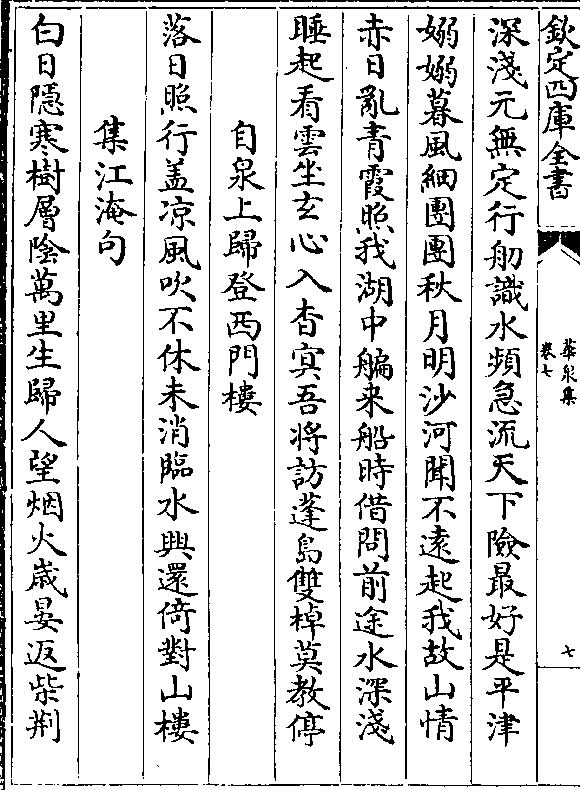 欽定四庫全書
華泉集
卷七
七
深淺元無定行舠識水頻急流天下險最好是平津
嫋嫋暮風細團團秋月明沙河聞不遠起我故山情
赤日亂青霞照我湖中艑来船時借問前途水深淺
睡起看雲坐玄心入杳冥吾將訪蓬島雙棹莫教停
自泉上歸登西門樓
落日照行盖凉風吹不休未消臨水興還倚對山樓
集江淹句
白日隱寒樹層陰萬里生歸人望烟火歳晏返柴荆